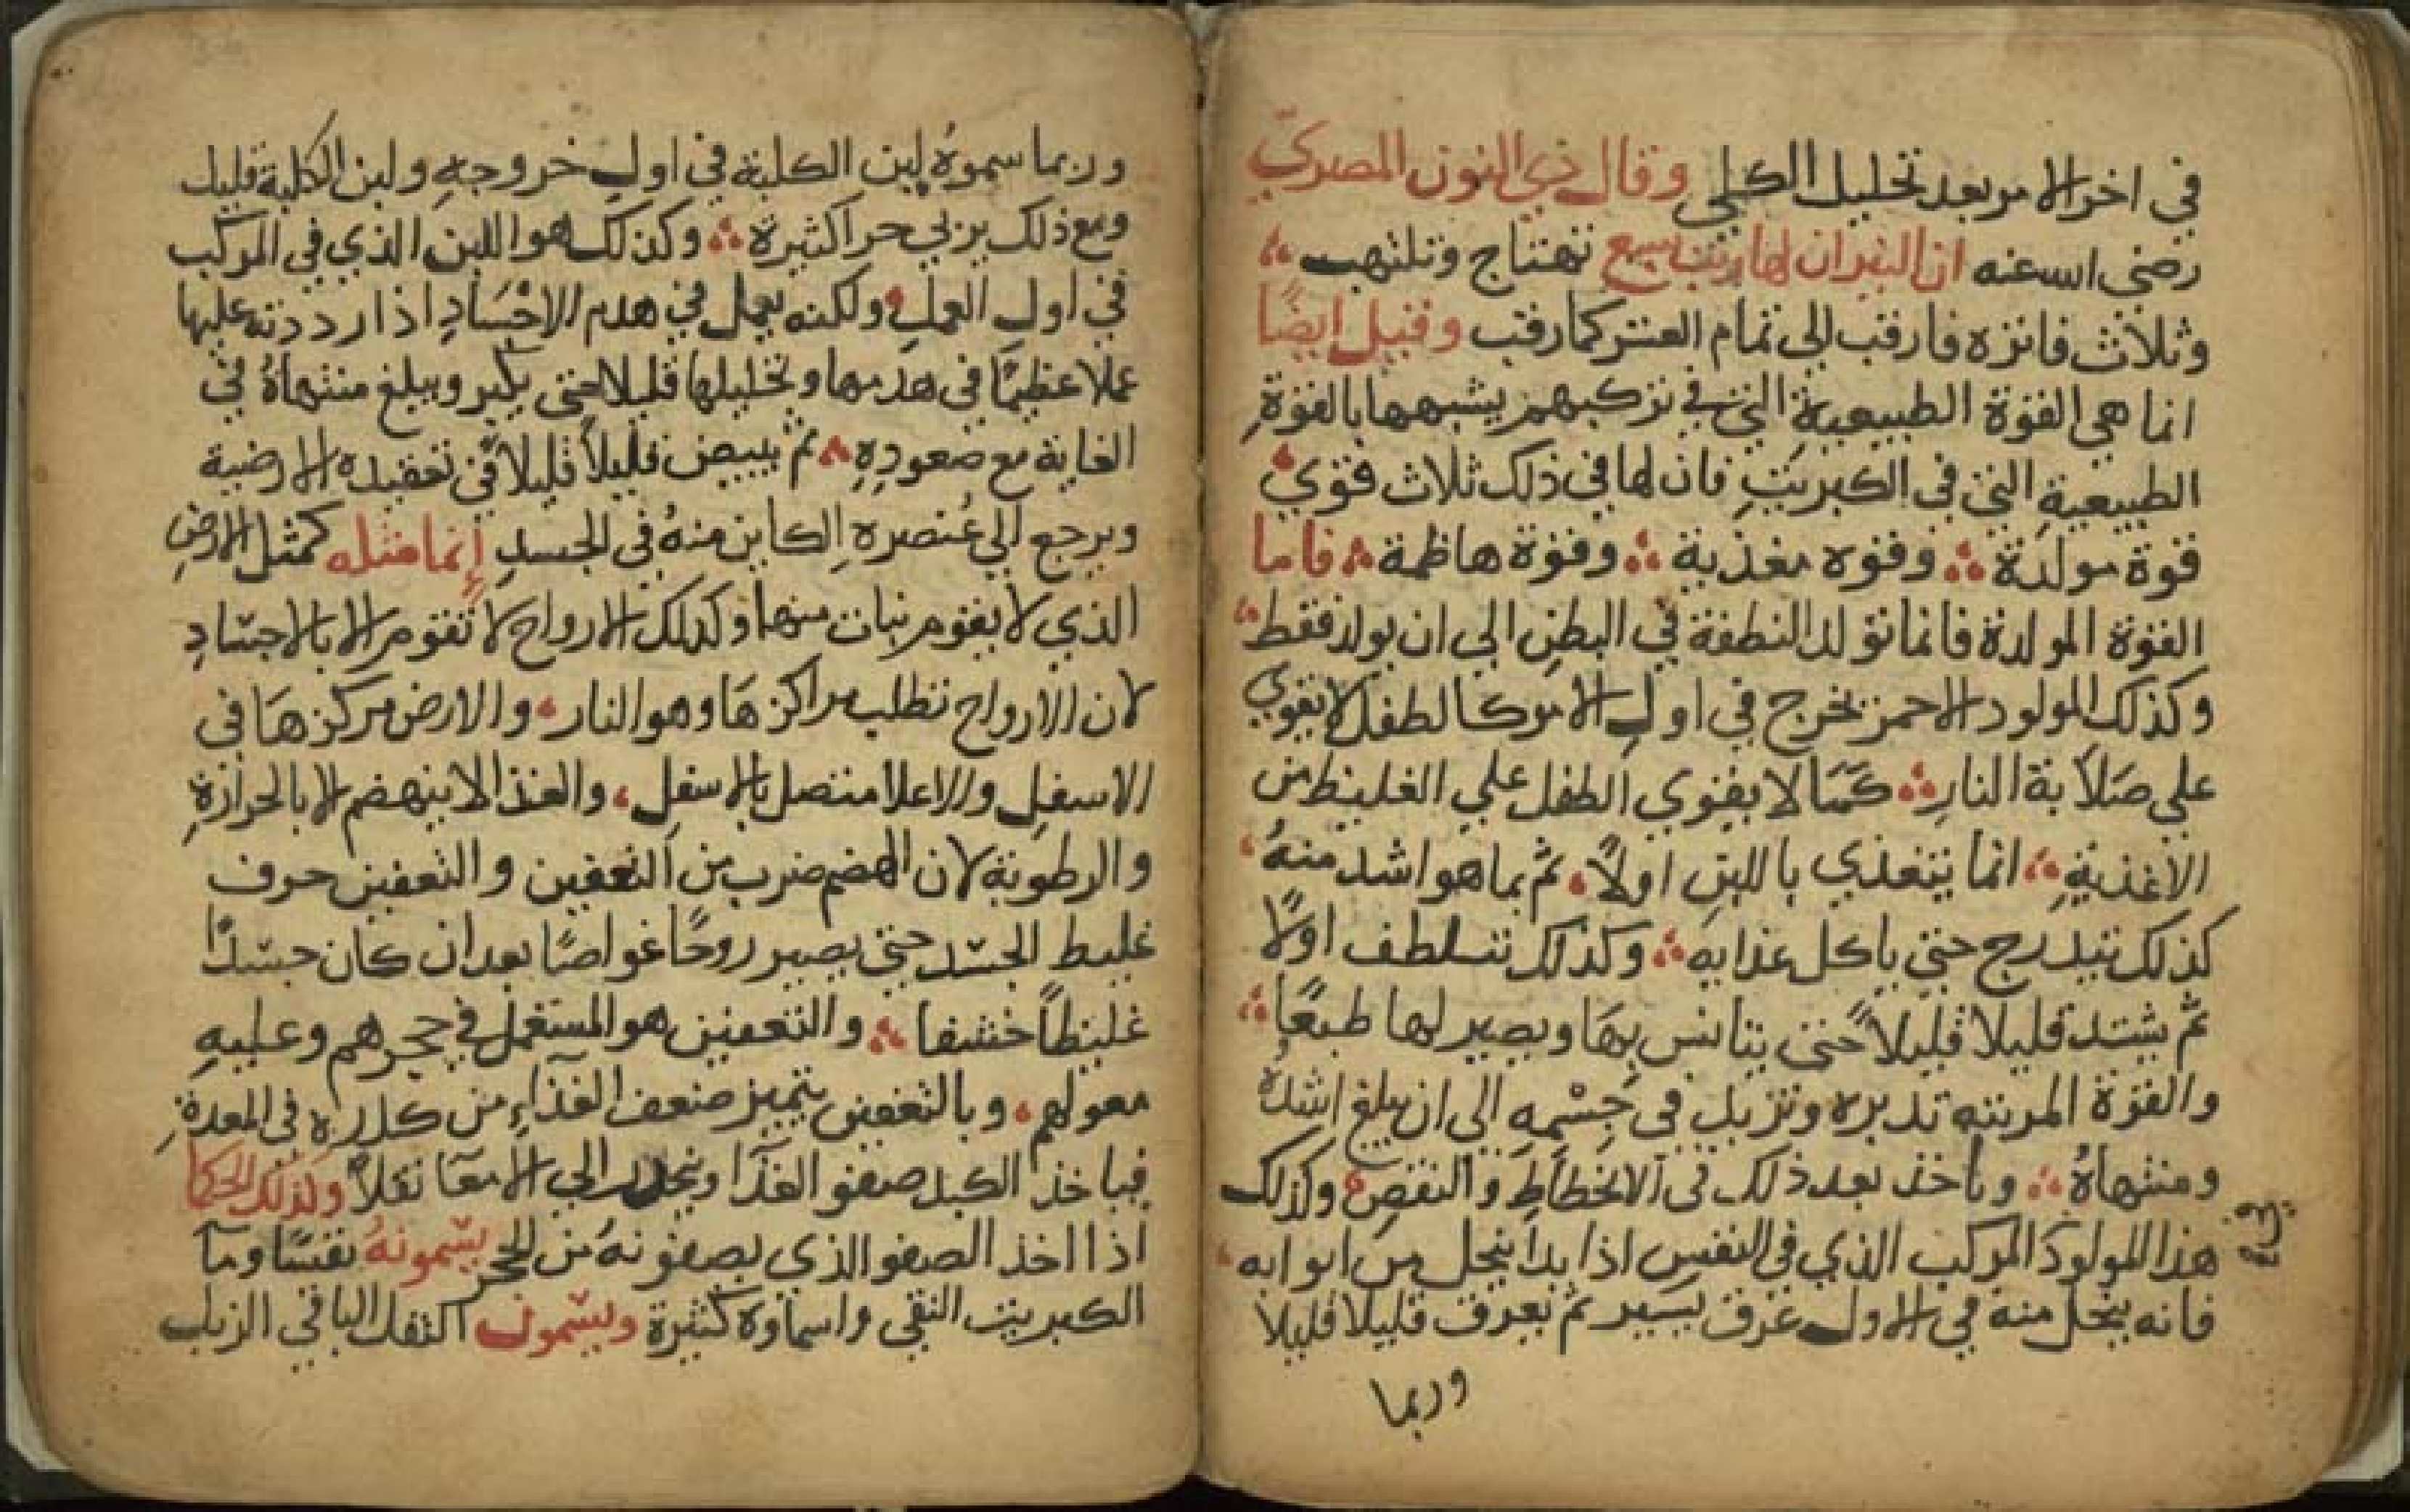 في اخر الامر بعد تحليل الكلي وقال ذي النون المصري
رضي الله عنه ان النيران لها رتب سبع تهتاج وتلتهب
وثلاث فانزه فارقب الى تمام العشر كما رقب وقيل ايضًا
انما هي القوة الطبيعية التي في تركيبهم يشبهها بالقوةِ
الطبيعية التي في الكبريتِ فان لها في ذلك ثلاث قوي
قوة مولدة وقوه مغذية وقوة هاظمة فاما
القوة المولدة فانما تولد النطفة في البطن الي ان يولد فقط
وكذلك المولود الاحمر يخرج في اول الامر كالطفل لا يقوي
علي صَلاَبة النارِ كَمَا لا يقوي الطفل علي الغليظ من
الاغذيةِ انما يتغذي باللبنِ اولاً ثم بما هو اشد منهُ
كذلك يتدرج حتي ياكل غذايه وكذلك تتلطف اولاً
ثم يشتد قليلا قليلاً حتى يتانس بهَا ويصير لها طبعًا
والقوة المربيه تدبره وتزيل في جِسْمِه الي ان يبلغ اشدهُ
ومنتهاهُ وياخذ بعد ذلك في الانحطاطِ والنقصِ وكذلك
هذا المولود المركب الذي في النفسِ اذا بدا ينحل من ابوابه
فانه ينحل منه في الاول عرق يسير ثم يعرق قليلا قليلا
وربما
وربما سموهُ لبن الكلبة في اولِ خروجهِ ولبن الكلبة قليل
ومع ذلك يربي جراً كثيرة وكذلك هو اللبن الذي في المركب
في اولِ العملِ ولكنه يعمل في هدم الاجْسَادِ اذا رددته عليها
عملا عظيمًا في هدمها وتحليلها قليلا حتي يكبر ويبلغ منتهاهُ في
الغاية مع صعودِهِ ثم يبيض قليلاً قليلاً في تعقيده الارضية
ويرجع الي عُنصره الكاين منهُ في الجسدِ إنما مثله كمثل الارضِ
الذي لا يقوم نبات منها وكذلك الارواح لا تقوم الا بالاجسَادِ
لان الارواح تطلب مراكزهَا وهو النار والارض مركزهَا في
الاسفلِ والاعلا متصل بالاسفلِ والغذا لا ينهضم الا بالحرارةِ
والرطوبة لان الهضم ضرب من التعفين والتعفين حرف
غليظ الجسَد حتي يصير روحًا غواصًا بعد ان كان جسَدًا
غليظاً خشفا والتعفين هو المستعمل في حجرهم وعليهِ
معولهم وبالتعفين يتميز صعف الغذاءِ من كدره في المعدةِ
فياخذ الكبد صفو الغذا وينحدر الي الامعَا ثقلاً وكذلك الحكما
اذا اخذ الصفو الذي يصفونهُ من الحجر يسَمونهُ نفسًا ومآ
الكبريت النقي واسماوهُ كثيرة ويسَمون الثفل الباقي الزبل